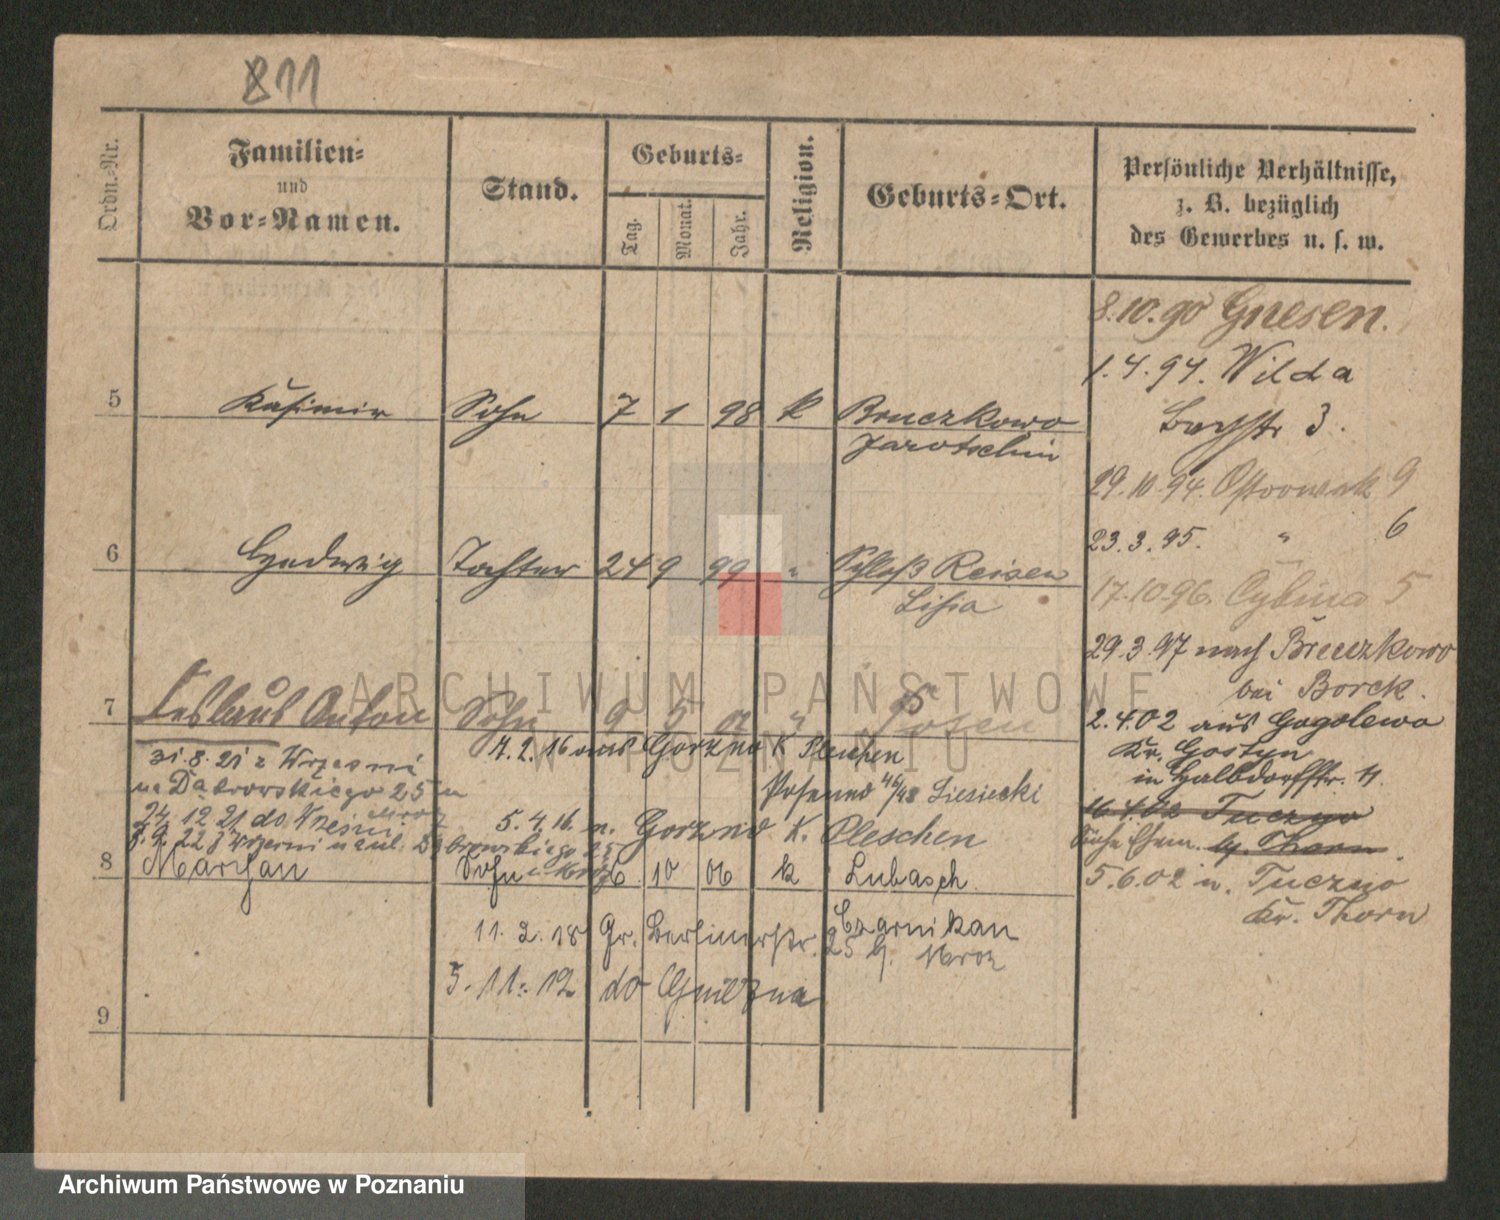 811
Ordn.-Nr.
Familien-
und
Vor-Namen.
Stand.
Geburts-
Tag.
Monat.
Jahr.
Religion.
Geburts-Ort.
Persönliche Verhältnisse,
z. B. bezüglich
des Gewerbes u. s. w.
8.10.90 Gnesen.
1.4.94. Wilda
3.
5 Kasimir Sohn 7 1 98 k Bruczkowo
Jarotschin
29.10.94. Ostrowek 9
23.3.95. " 6
6 Hedwig Tochter 24 9 99 " Schloß Reisen
Lissa
17.10.96. Cybina 5
29.3.97 nach Bruczkowo
bei Borek.
7 Anton Sohn 9 5 " Posen
2.4.02 aus Gogolewo
Kr. Gostyn
in Halbdorffstr.
7.2.16 aus Gorzno K Pleschen
31.8.21 z Wrześni
na Dąbrowskiego 25
Liesiecki
24.12.21 do Wrześni
5.4.16. n. Gorzno K. Pleschen
z Wrześni na ul. Dąbrowskiego 25
Tuczno
Thorn
8 Marjan Sohn 6 10 06 k Lubasch
Czarnikau
5.6.02 n. Tuczno
Kr. Thorn
11.2.18 Gr. Berlinerstr. 25 b. Mroz
5.11.19 do Gniezna
9
ARCHIWUM PAŃSTWOWE
W POZNANIU
Archiwum Państwowe w Poznaniu